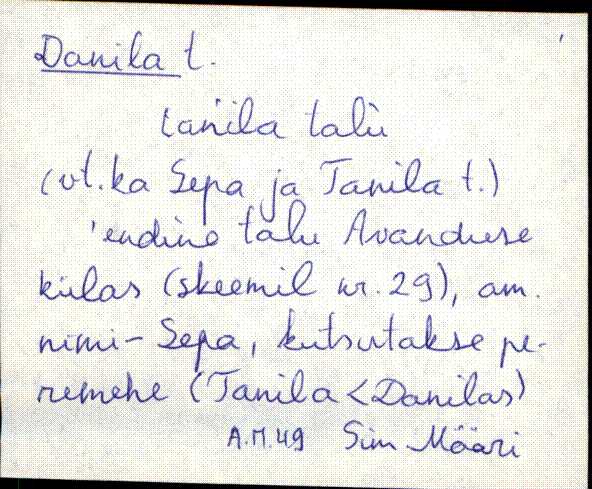 Danila t.
tańila talu
(vt. ka Sepa ja Tanila t.)
'endine talu Avanduse
külas (skeemil nr. 29), am.
nimi - Sepa, kutsutakse pe-
remehe (Tanila < Danilas)
A.M.49 Sim Määri